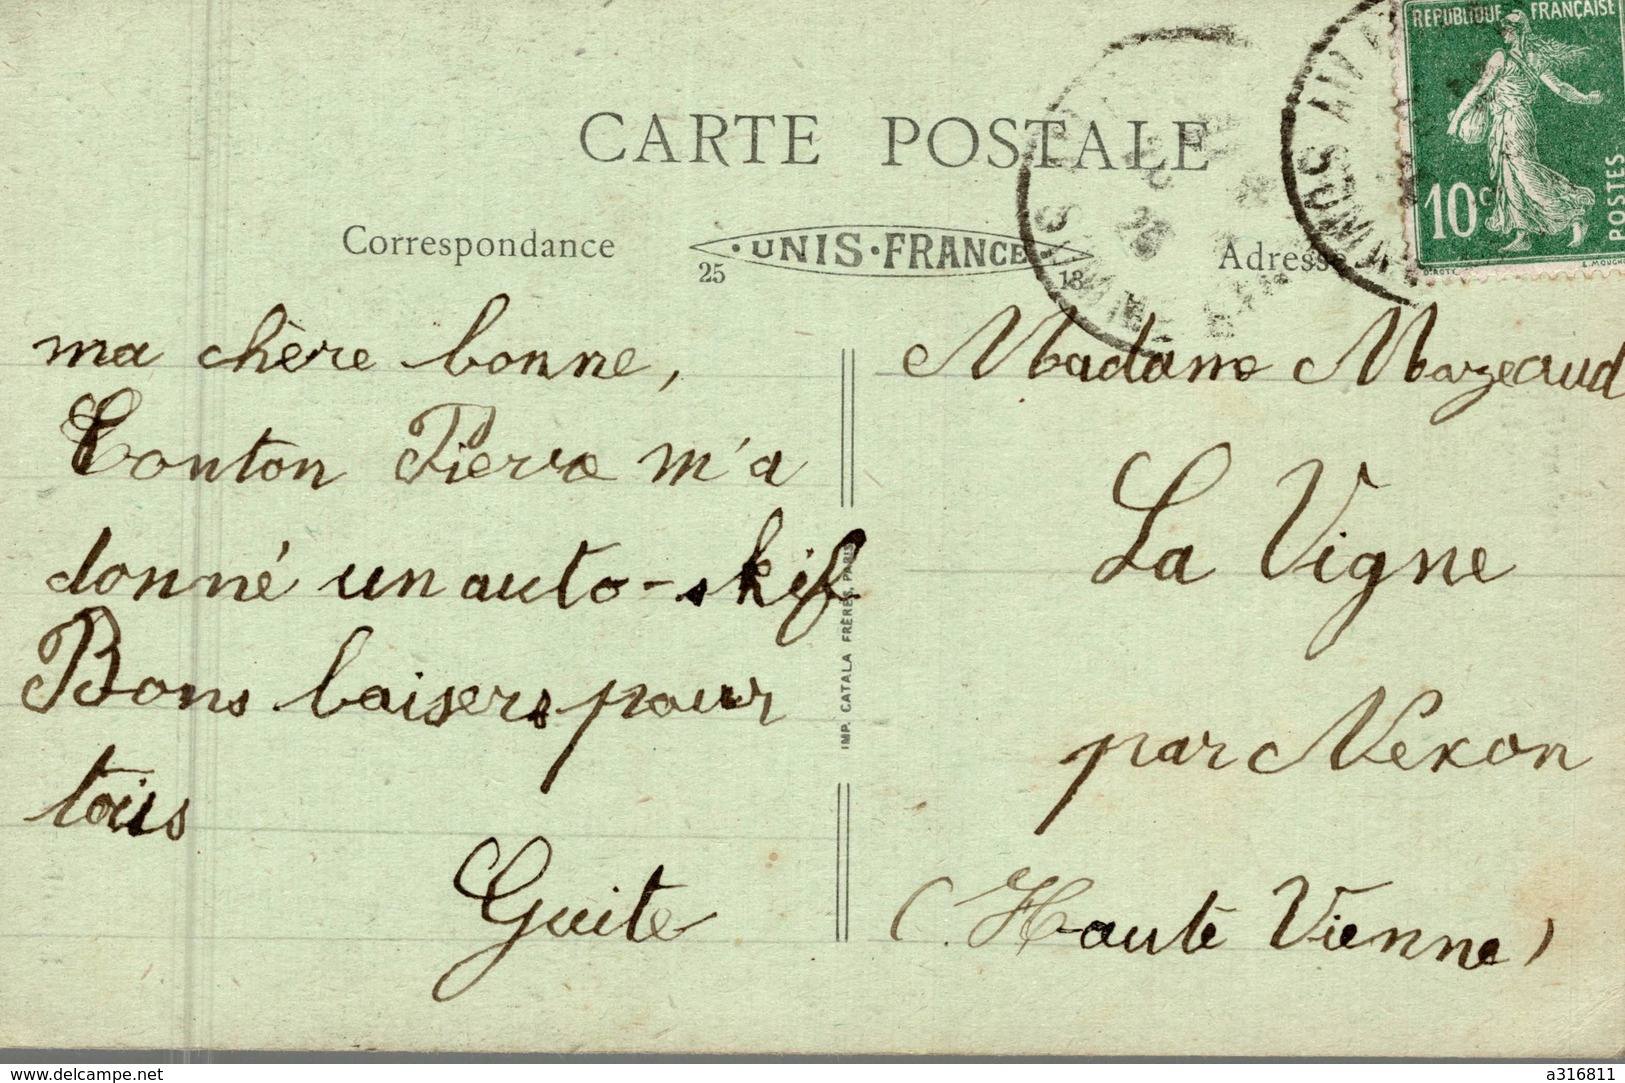 REPUBLIQUE FRANÇAISE
10c
POSTES
CARTE POSTALE
Correspondance
UNIS·FRANCE
25
18
Adresse
ma chère bonne,
Tonton Pierre m'a
donné un auto-skif
Bons baisers pour
tous
Guite
IMP. CATALA FRÈRES, PARIS
Madame Mazeaud
La Vigne
par Nexon
(Haute Vienne)
www.delcampe.net
a316811